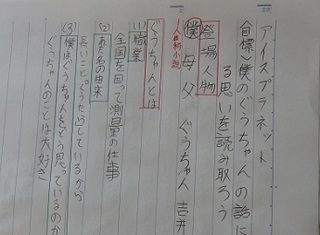 アイスプラネット
〈目標〉僕のぐうちゃんの話に
る思いを読み取ろう
登場人物
僕 母 父 ぐうちゃん 吉井
一人称小説
ぐうちゃんとは
(1)職業
全国を回って測量の仕事
(2)あだ名の由来
長いこと「ぐうたら」しているから
(3)僕はぐうちゃんをどう思っているのか
ぐうちゃんのことは大好き